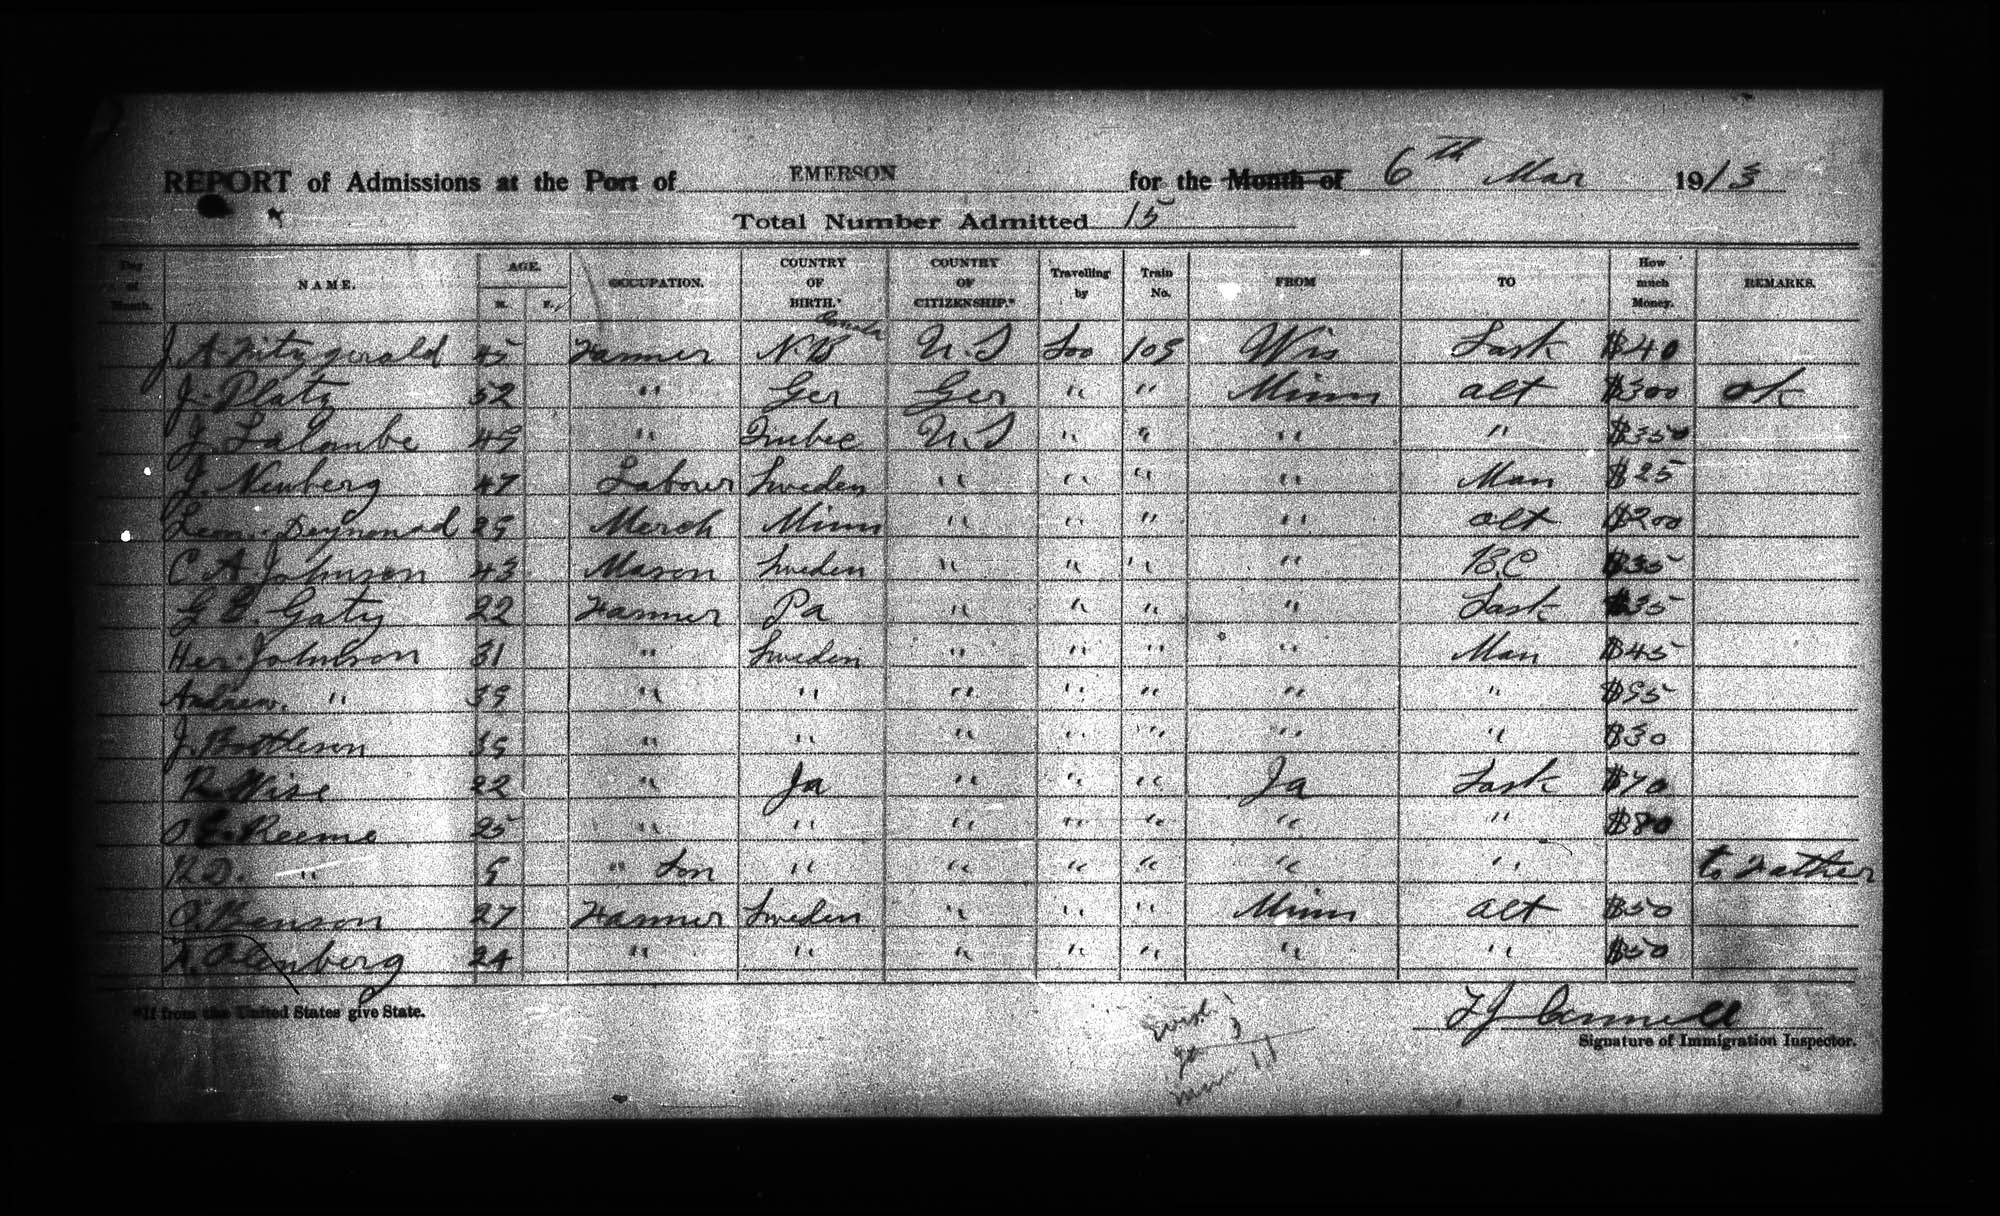 REPORT of Admissions at the Port of EMERSON for the Month of 6th Mar 1913
Total Number Admitted 15
Day of Month. NAME. AGE. M. F. OCCUPATION. COUNTRY OF BIRTH.* COUNTRY OF CITIZENSHIP.* Travelling by Train No. FROM TO How much Money. REMARKS.
J. A. Fitzgerald 45 Farmer N.B Canada U.S Soo 109 Wis Sask $40
J. Platz 52 " Ger Ger " " Minn alt $300 ok
J. Lalombe 49 " Qubec U.S " " " " $350
J. Newberg 47 Labour Sweden " " " " Man $25
Leon. Deymond 29 Merch Minn " " " " alt $200
C A Johnson 43 Mason Sweden " " " " B.C $35
G E. Gaty 22 Farmer Pa " " " " Sask $35
Her. Johnson 31 " Sweden " " " " Man $45
Andrew. " 39 " " " " " " " $95
J. Bottleson 39 " " " " " " " $30
R Wise 22 " Ja " " " Ja Sask $70
O E. Reems 25 " " " " " " " $80
H D. " 9 " Son " " " " " " to Father
O. Benson 27 Farmer Sweden " " " Minn alt $50
A. Olenberg 24 " " " " " " " $50
*If from the United States give State.
Signature of Immigration Inspector.